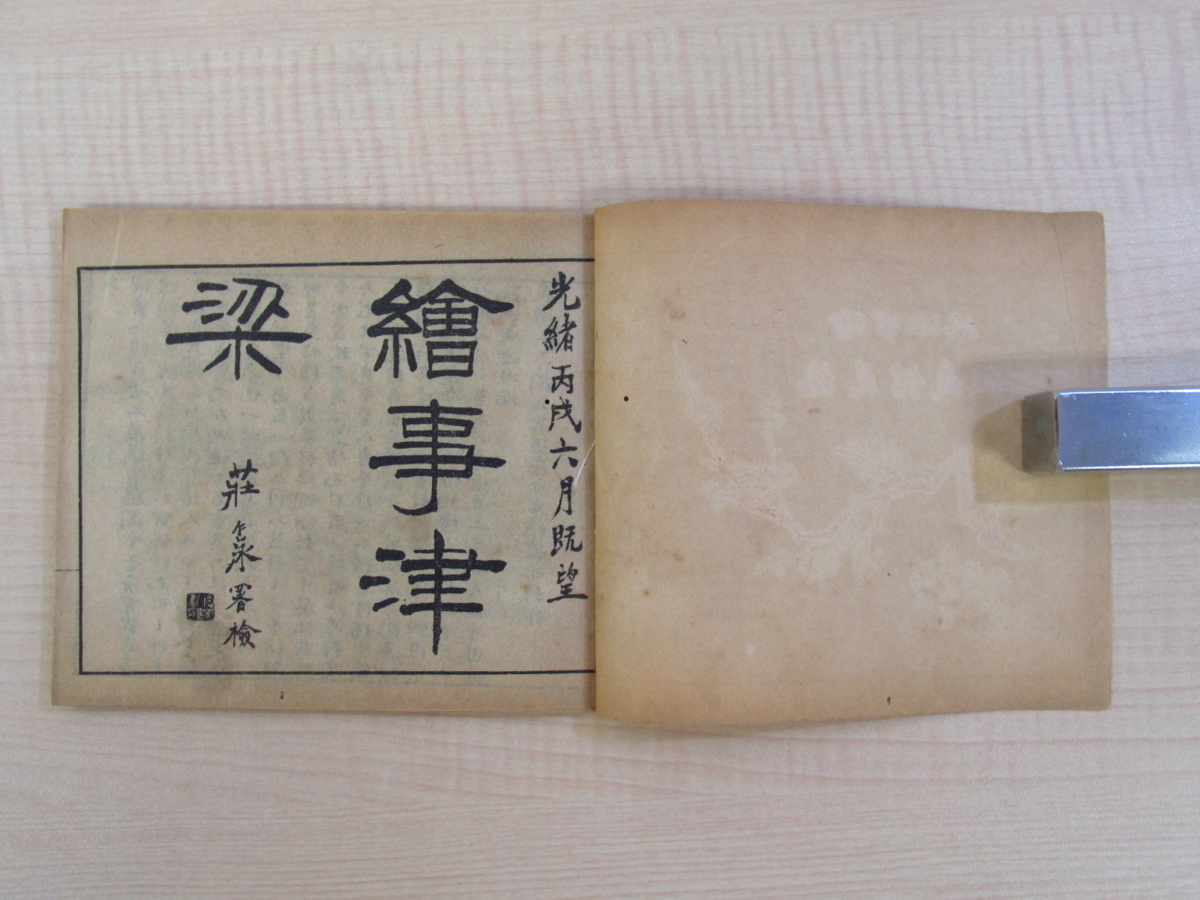 光緒丙戌六月既望
繪事津
梁
莊 署檢